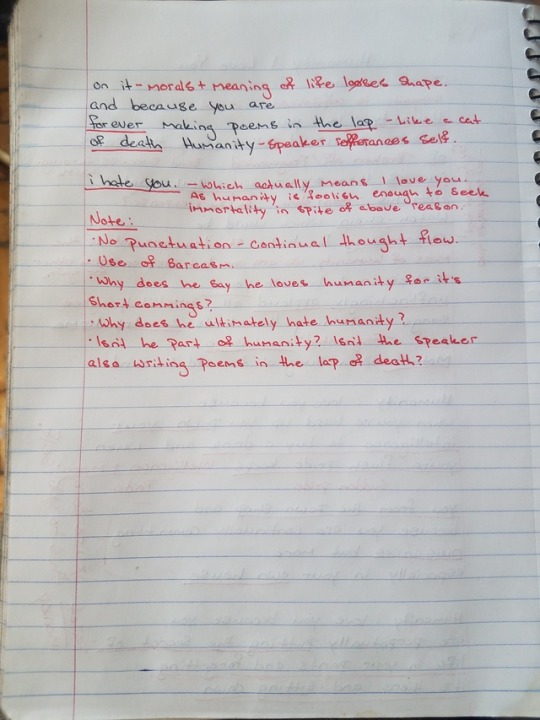 on it - morals + meaning of life looses shape.
and because you are
forever making poems in the lap - Like a cat
of death Humanity - speaker refferances self.
i hate you. - which actually means I love you.
As humanity is foolish enough to seek
immortality in spite of above reason.
Note:
· No punctuation - continual thought flow.
· Use of Sarcasm.
· Why does he say he loves humanity for it's
shortcommings?
· Why does he ultimately hate humanity?
· Isn't he part of humanity? Isn't the speaker
also writing poems in the lap of death?